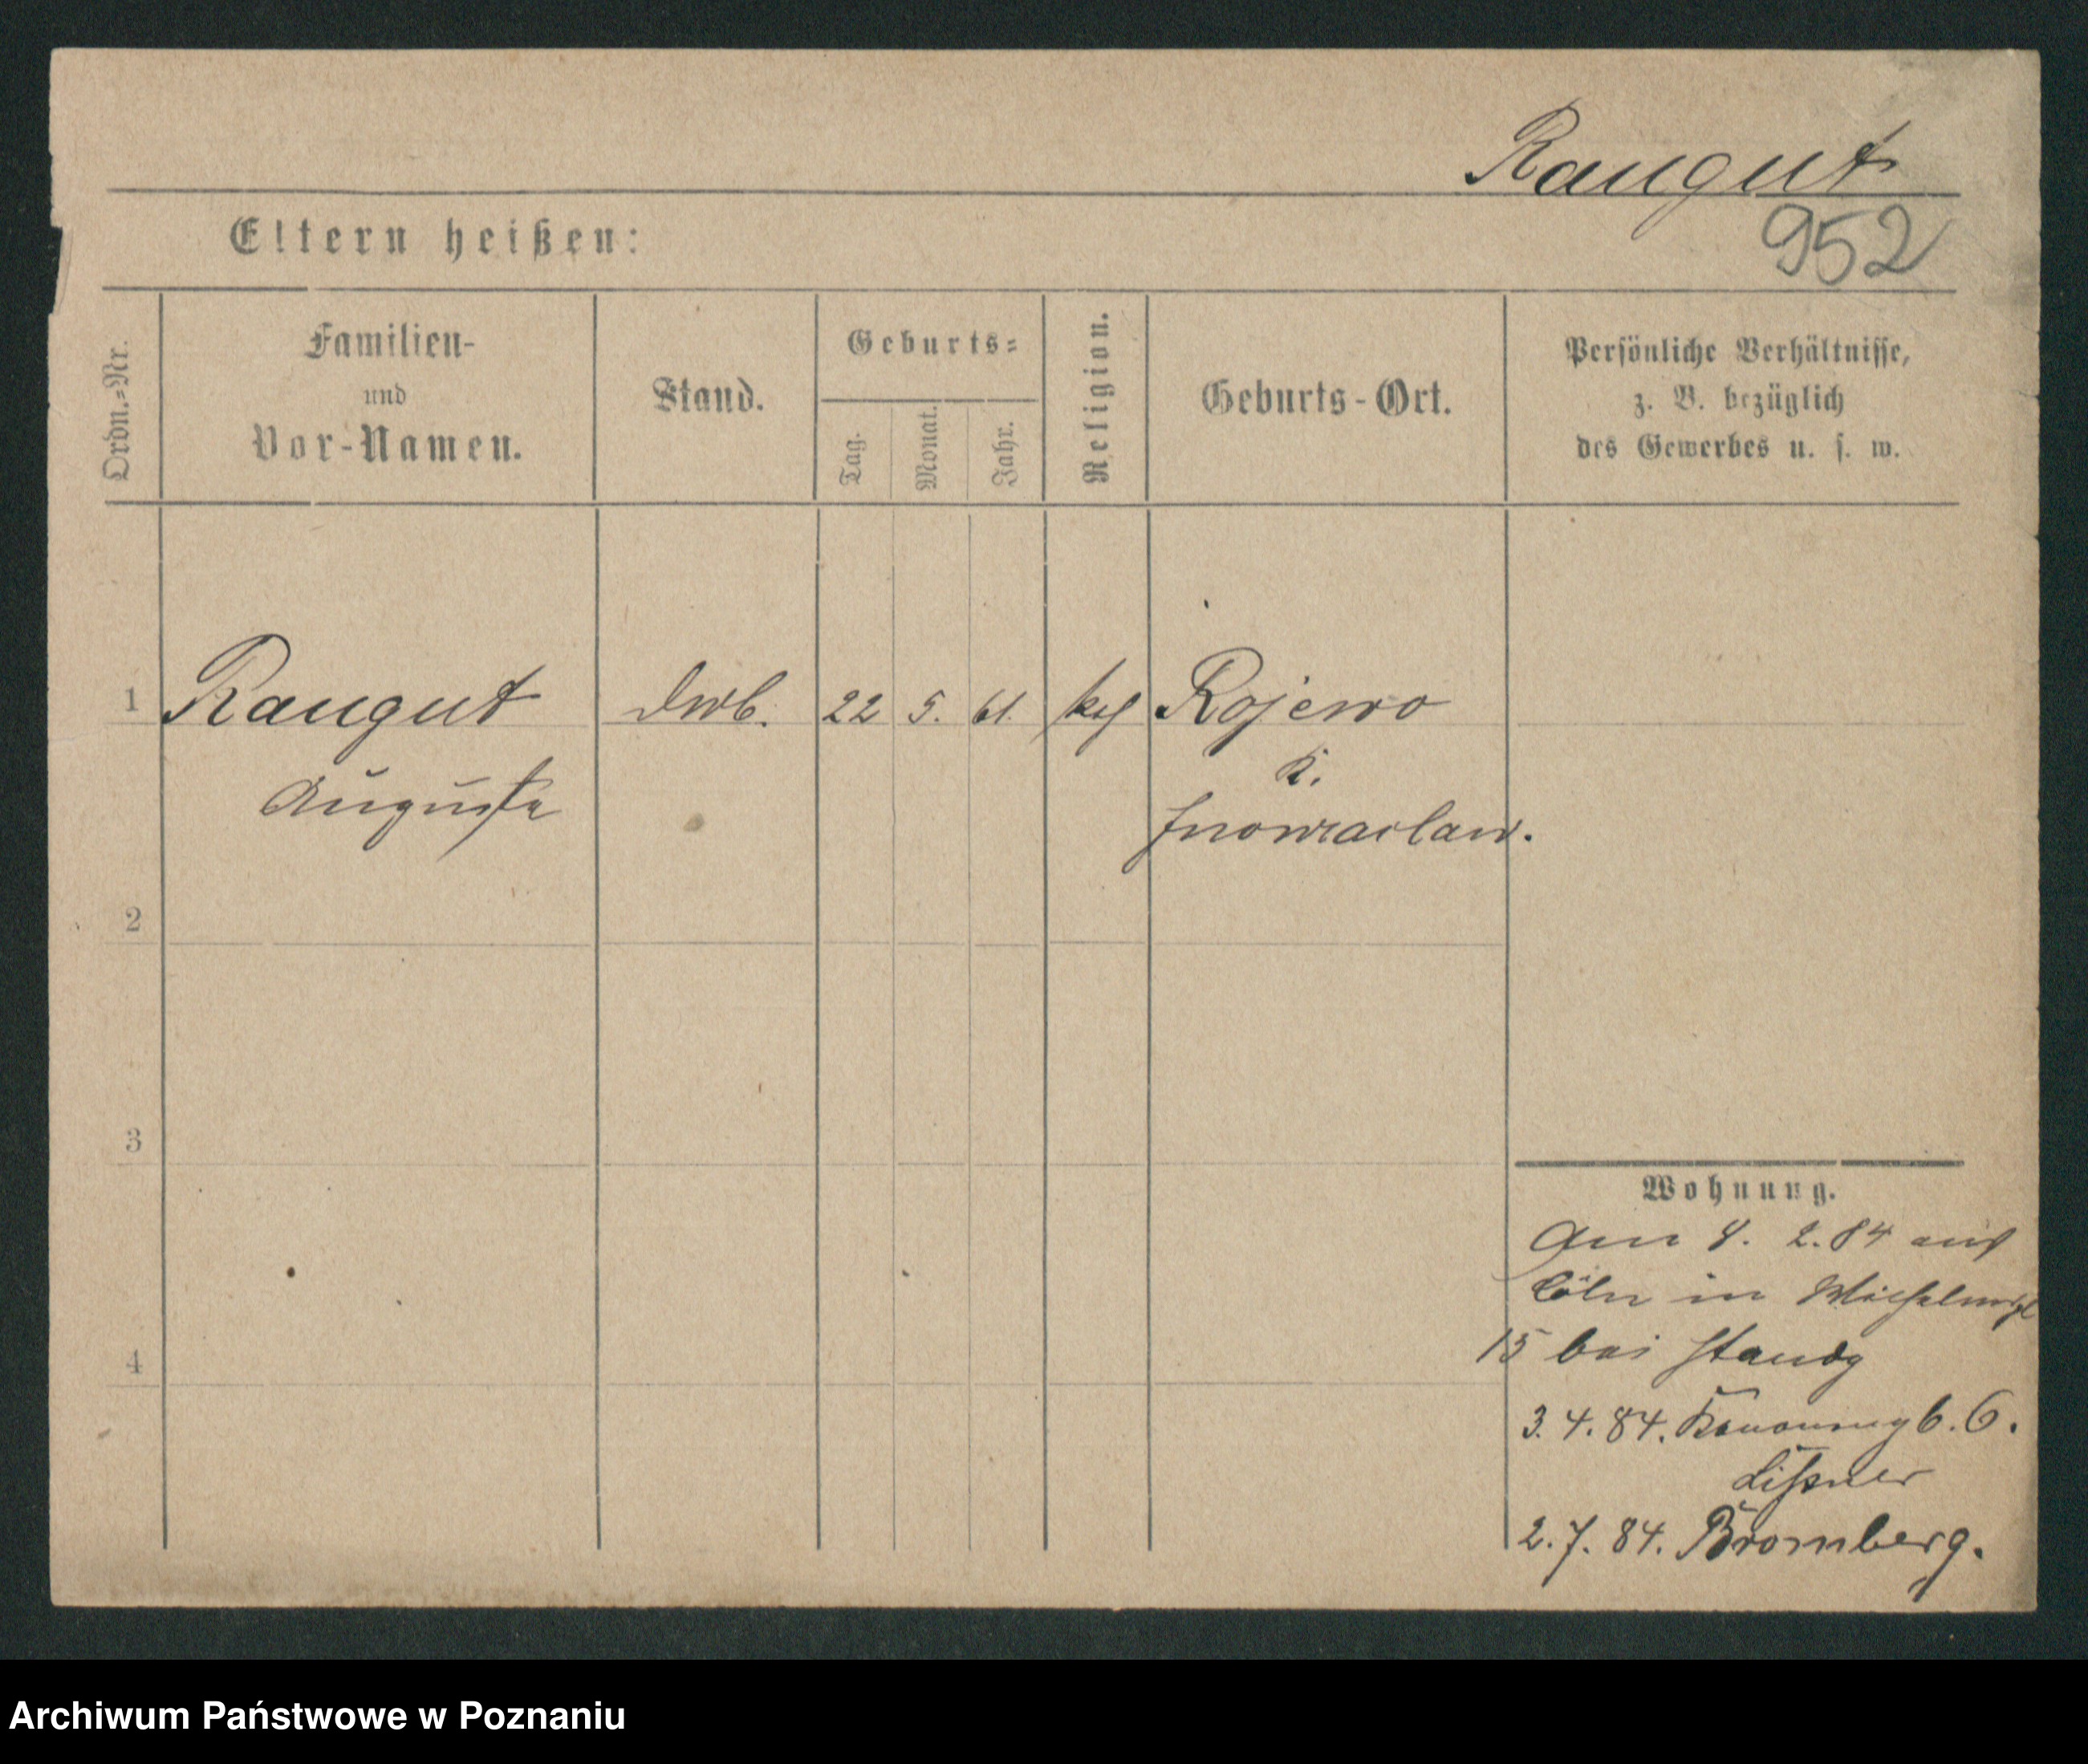 Raugut
952
Eltern heißen:
Ordn.-Nr.
Familien-
und
Vor-Namen.
Stand.
Geburts-
Tag.
Monat.
Jahr.
Religion.
Geburts-Ort.
Persönliche Verhältnisse,
z. B. bezüglich
des Gewerbes u. s. w.
1 Raugut 22 5. 61. Rojewo
Auguste
K.
Inowraclaw.
2
3
4
Wohnung.
2.84 aus
Cöln in
15 bei
3.4.84. 6.
Lißner
2.7.84. Bromberg.
Archiwum Państwowe w Poznaniu